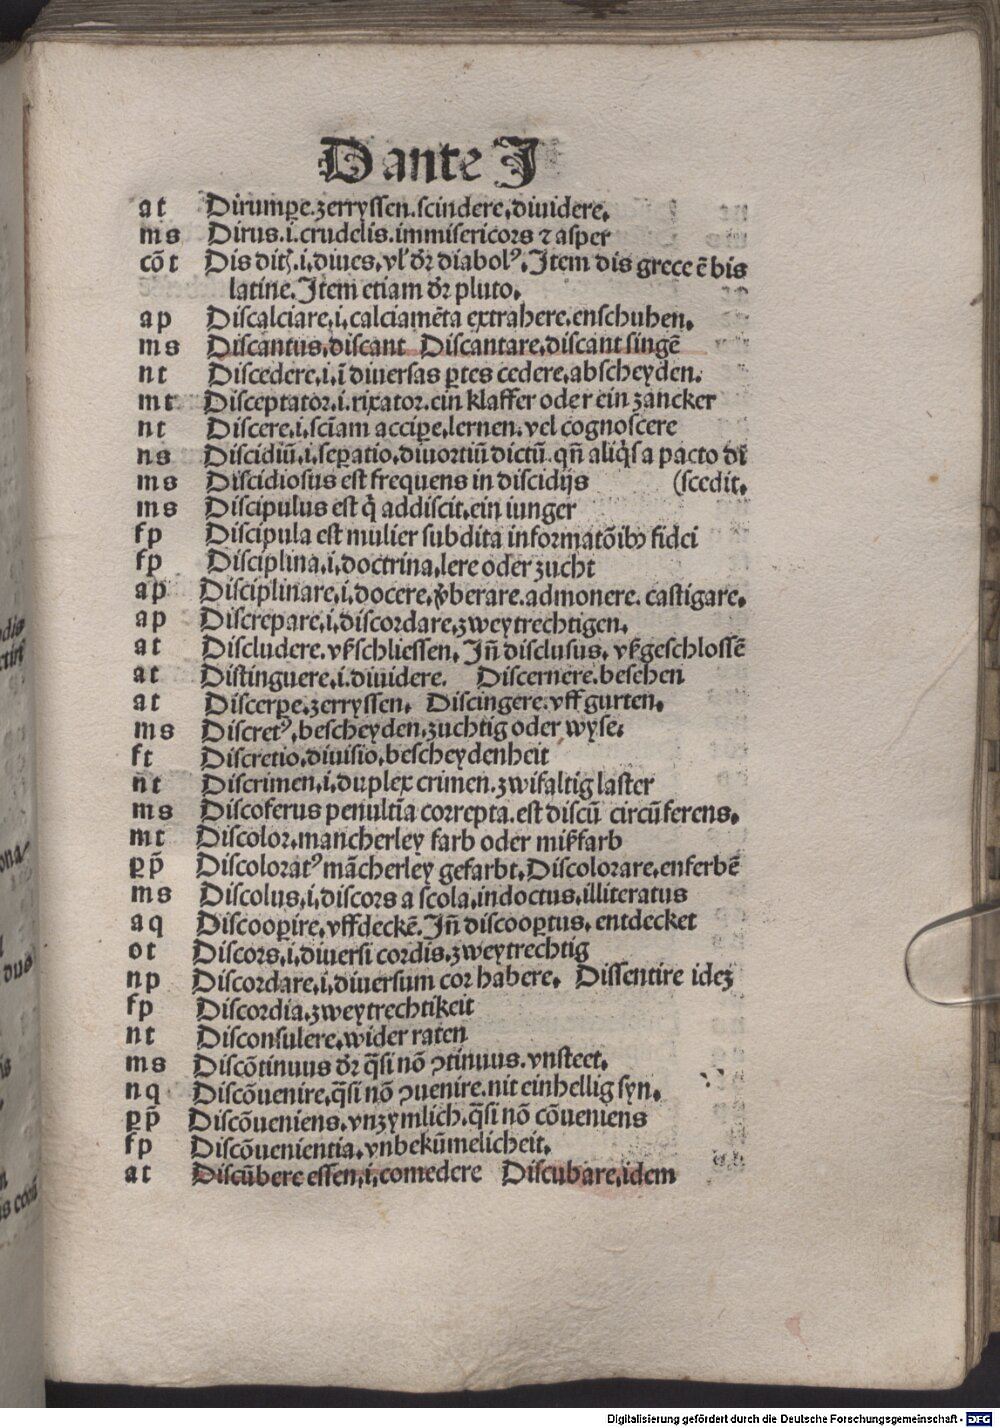 Dante J
at Dirumꝑe.zerryssen.scindere.diuidere.
ms Dirus.i.crudelis.immisericors ⁊ asper
cōt Dis ditꝭ.i.diues.vl' dr̄ diabolꝰ.Item dis grece ē bis
latine.Item etiam dr̄ pluto.
ap Discalciare.i.calciamēta extrahere.enschuhen.
ms Discantus.discant Discantare.discant singē
nt Discedere.i.ī diuersas ꝑtes cedere.abscheyden.
mt Disceptator.i.rixator.ein klaffer oder ein zancker
nt Discere.i.sciam acciꝑe.lernen.vel cognoscere
ns Discidiū.i.seꝑatio.diuortiū dictū.qn̄ aliq̇s a pacto di
ms Discidiosus est frequens in discidijs (scedit.
ms Discipulus est q̇ addiscit.ein iunger
fp Discipula est mulier subdita informatōibꝫ fidei
fp Disciplina.i.doctrina.lere oder zucht
ap Disciplinare.i.docere.v̓berare.admonere. castigare.
ap Discrepare.i.discordare.zweytrechtigen.
at Discludere.vßschliessen.Jn̄ disclusus. vßgeschlossē
at Distinguere.i.diuidere. Discernere.besehen
at Discerꝑe.zerryssen. Discingere.vff gurten.
ms Discretꝰ.bescheyden.zuchtig oder wyse.
ft Discretio.diuisio.bescheydenheit
nt Discrimen.i.duplex crimen.zwifaltig laster
ms Discoferus penultīa correpta.est discū circūferens.
mt Discolor.mancherley farb oder mißfarb
ꝑp̄ Discoloratꝰ mācherley gefarbt.Discolorare.enferbē
ms Discolus.i.discors a scola.indoctus.illiteratus
aq Discooꝑire.vffdeckē.Jn̄ discooꝑtus. entdecket
ot Discors.i.diuersi cordis.zweytrechtig
np Discordare.i.diuersum cor habere. Dissentire ideꝫ
fp Discordia.zweytrechtikeit
nt Disconsulere.wider raten
ms Discōtinuus dr̄ q̄si nō ꝯtinuus.vnsteet.
nq Discōuenire.q̄si nō ꝯuenire.nit einhellig syn.
ꝑp̄ Discōueniens.vnzymlich.q̄si nō cōueniens
fp Discōuenientia.vnbekūmelicheit.
at Discūbere essen.i.comedere Discubare.idem
Digitalisierung gefördert durch die Deutsche Forschungsgemeinschaft - DFG